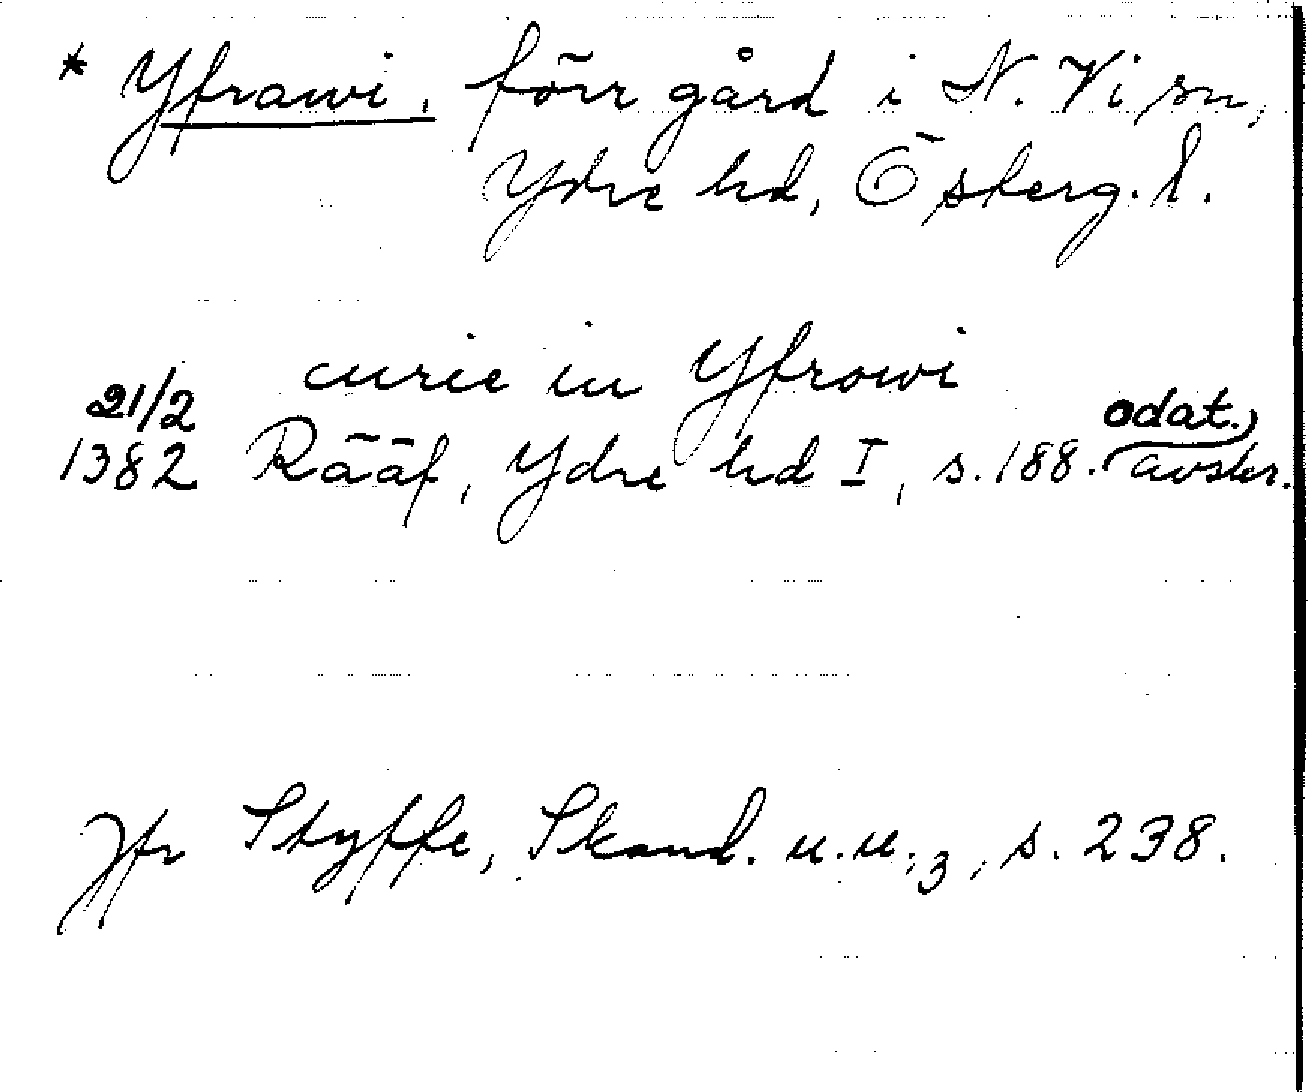 * Yfrawi, förr gård i N. Vi sn,
Ydre hd, Östergl.
curie in Yfrowi
21/2 odat.,
1382 Rääf, Ydre hd I, s. 188. avskr.
Jfr Styffe, Skand. u.u.,3, s. 238.